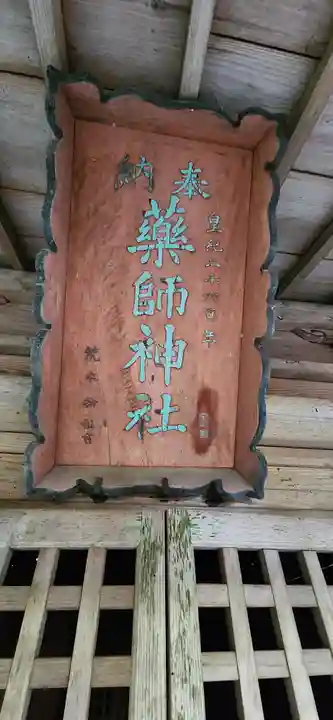 奉納
皇紀二千六百年
薬師神社